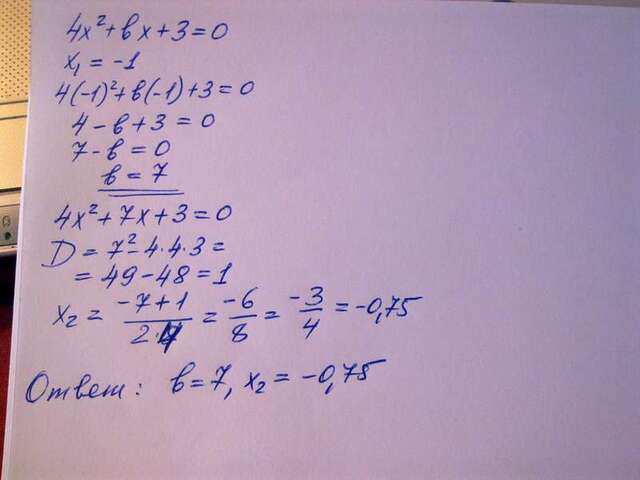 4x²+bx+3=0
x₁=-1
4(-1)²+b(-1)+3=0
4-b+3=0
7-b=0
b=7
4x²+7x+3=0
D=7²-4·4·3=
=49-48=1
x₂ = (-7+1)/(2·4) = -6/8 = -3/4 = -0,75
Ответ: b=7, x₂=-0,75